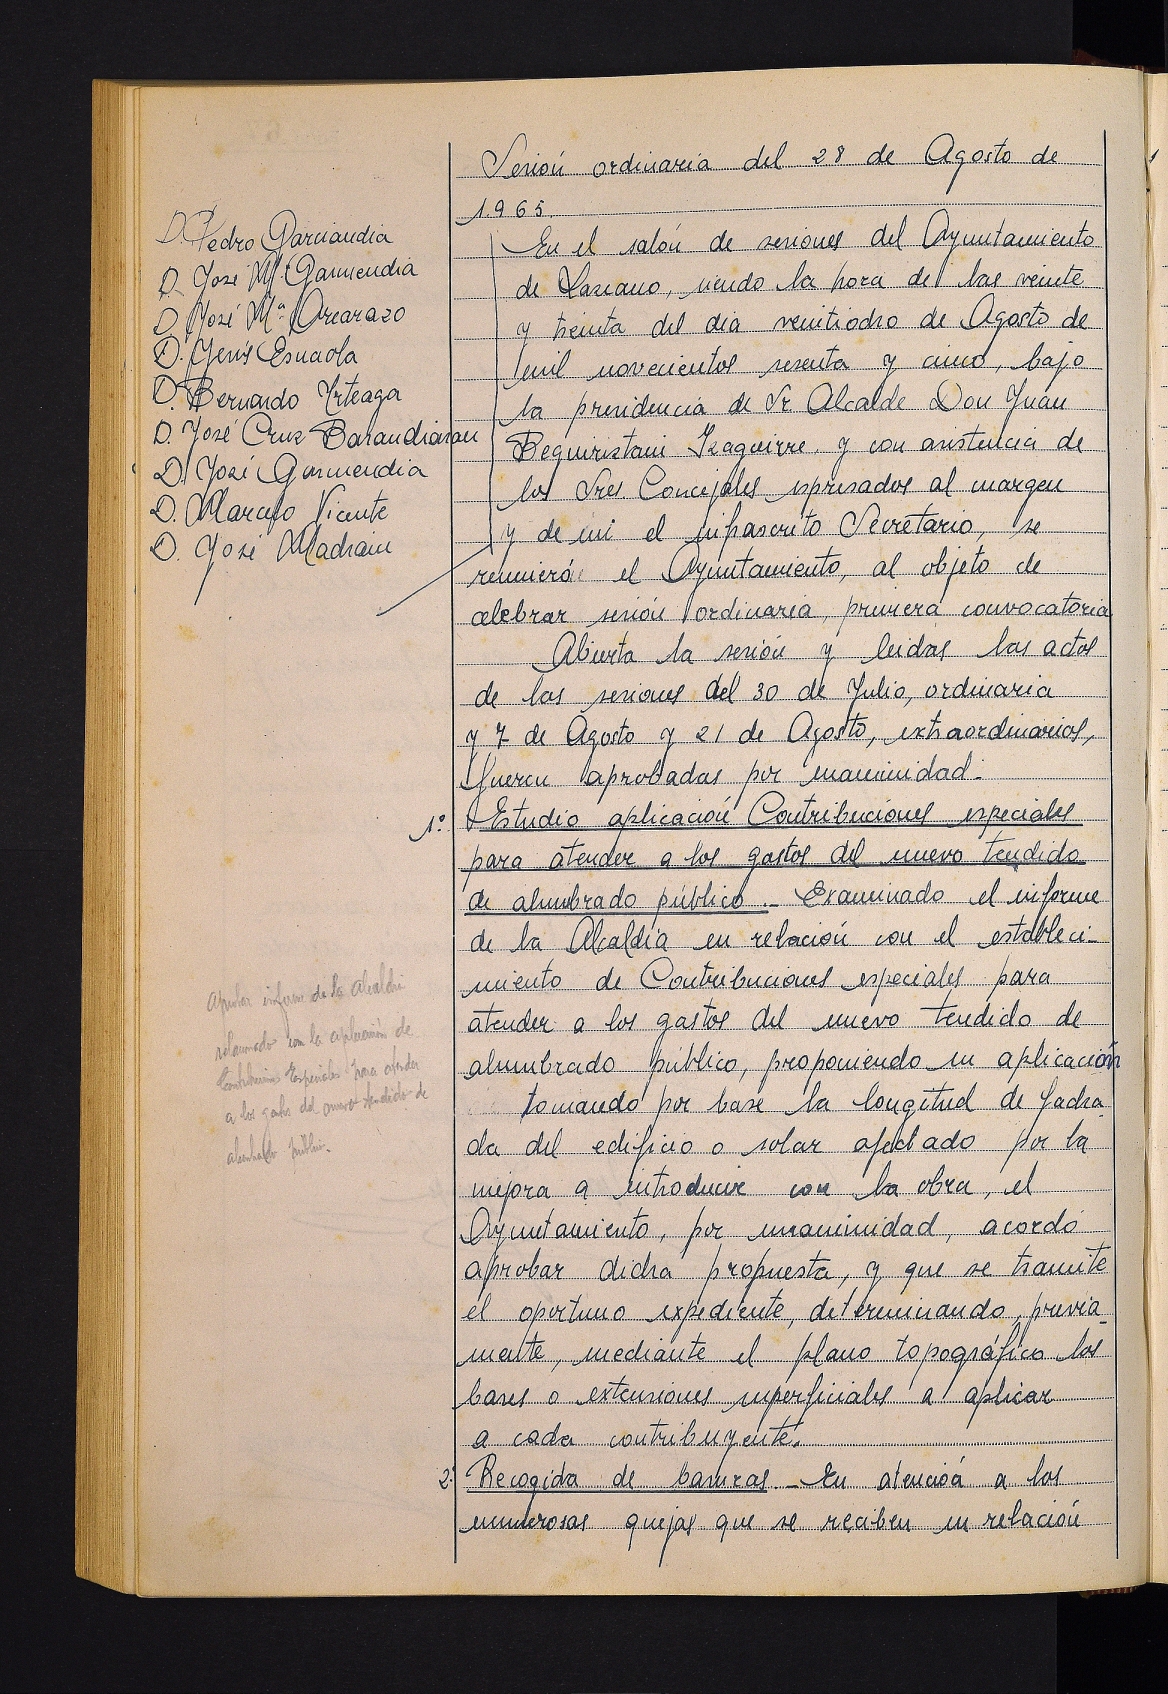 Sesión ordinaria del 28 de Agosto de
1.965.
D. Pedro Garciandia
D. José Mª Garmendia
D. José Mª Ocarazo
D. Jesús Esnaola
D. Bernardo Urteaga
D. José Cruz Barandiaran
D. José Garmendia
D. Marcelo Vicente
D. José Madrain
En el salón de sesiones del Ayuntamiento
de Lazcano, siendo la hora de las veinte
y treinta del día veintiocho de Agosto de
mil novecientos sesenta y cinco, bajo
la presidencia de Sr. Alcalde Don Juan
Beguiristain Izaguirre, y con asistencia de
los Sres Concejales espresados al margen
y de mi el infrascrito Secretario, se
reunieró el Ayuntamiento, al objeto de
celebrar sesión ordinaria, primera convocatoria
Abierta la sesión y leidas las actas
de las sesiones del 30 de Julio, ordinaria
y 7 de Agosto y 21 de Agosto, extraordinarias,
fueron aprobadas por unanimidad.
1º Estudio aplicación Contribuciones especiales
para atender a los gastos del nuevo tendido
de alumbrado público.- Examinado el informe
de la Alcaldía en relación con el estableci-
miento de Contribuciones especiales para
atender a los gastos del nuevo tendido de
alumbrado público, proponiendo su aplicación
tomando por base la longitud de facha-
da del edificio o solar afectado por la
mejora a introducir con la obra, el
Ayuntamiento, por unanimidad, acordó
aprobar dicha propuesta, y que se tramite
el oportuno expediente, determinando, previa-
mente, mediante el plano topográfico las
bases o extensiones superficiales a aplicar
a cada contribuyente.
Aprobar informe de la Alcaldia
relacionado con la aplicación de
Contribuciones Especiales para atender
a los gastos del nuevo tendido de
alumbrado público.
2º Recogida de basuras.- En atenciõa a las
numerosas quejas que se reciben en relación